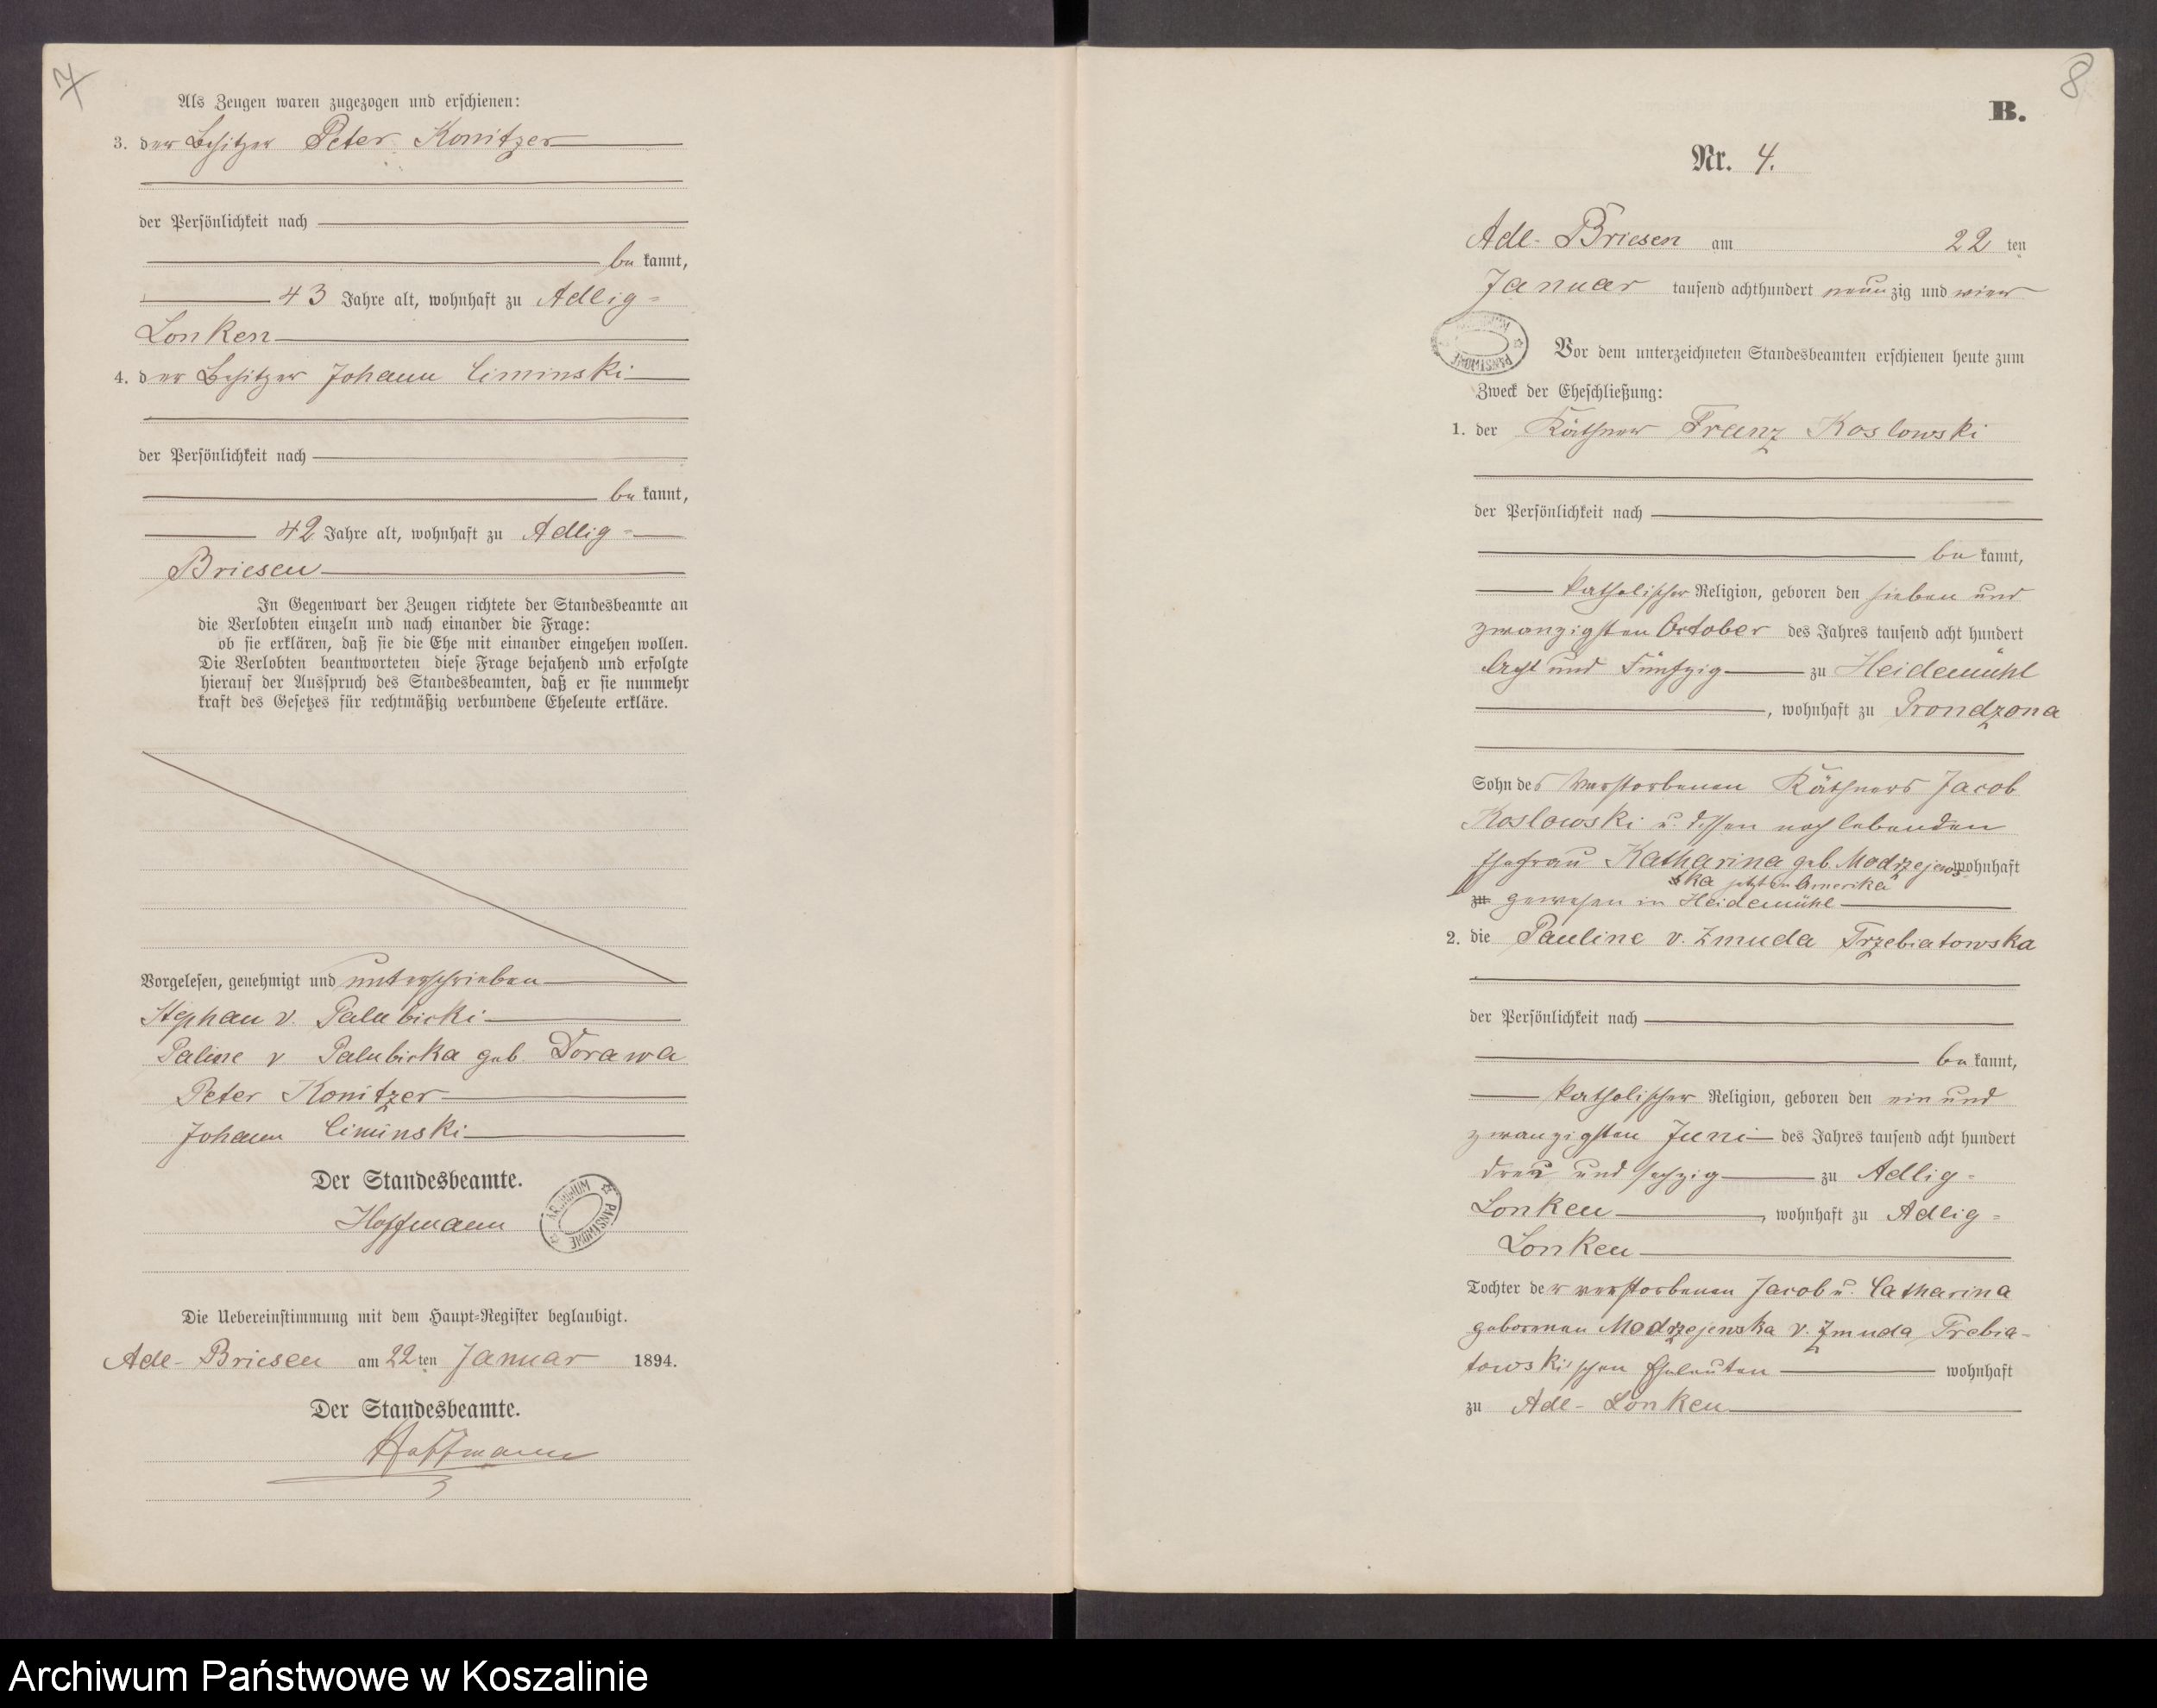 7
Als Zeugen waren zugezogen und erschienen:
3. der Besitzer Peter Konitzer
der Persönlichkeit nach
be kannt,
43 Jahre alt, wohnhaft zu Adlig-
Lonken
4. der Besitzer Johann Ciminski
der Persönlichkeit nach
be kannt,
42 Jahre alt, wohnhaft zu Adlig-
Briesen
In Gegenwart der Zeugen richtete der Standesbeamte an
die Verlobten einzeln und nach einander die Frage:
ob sie erklären, daß sie die Ehe mit einander eingehen wollen.
Die Verlobten beantworteten diese Frage bejahend und erfolgte
hierauf der Ausspruch des Standesbeamten, daß er sie nunmehr
kraft des Gesetzes für rechtmäßig verbundene Eheleute erkläre.
Vorgelesen, genehmigt und unterschrieben
Stephan v. Palubicki
Paline v Palubicka geb. Dorawa
Peter Konitzer
Johann Ciminski
Der Standesbeamte.
Hoffmann
ARCHIWUM PAŃSTWOWE
Die Uebereinstimmung mit dem Haupt-Register beglaubigt.
Adl- Briesen am 22 ten Januar 1894.
Der Standesbeamte.
Hoffmann
8
B.
Nr. 4.
Adl- Briesen am 22 ten
Januar tausend achthundert neun zig und vier
ARCHIWUM PAŃSTWOWE
Vor dem unterzeichneten Standesbeamten erschienen heute zum
Zweck der Eheschließung:
1. der Käthner Franz Koslowski
der Persönlichkeit nach
be kannt,
katholischer Religion, geboren den sieben und
zwanzigsten October des Jahres tausend acht hundert
Acht und Fünfzig zu Heidemühl
, wohnhaft zu Prondzona
Sohn des verstorbenen Käthners Jacob
Koslowski u. dessen noch lebenden
Ehefrau Katharina geb. Modrzejews- wohnhaft
ska jetzt in Amerika
zu gewesen in Heidemühl
2. die Pauline v. Zmuda Trzebiatowska
der Persönlichkeit nach
be kannt,
katholischer Religion, geboren den ein und
zwanzigsten Juni des Jahres tausend acht hundert
drei und sechzig zu Adlig-
Lonken, wohnhaft zu Adlig-
Lonken
Tochter der verstorbenen Jacob u. Catharina
geborenen Modrzejewska v. Zmuda Trebia-
towski'schen Eheleuten wohnhaft
zu Adl- Lonken
Archiwum Państwowe w Koszalinie